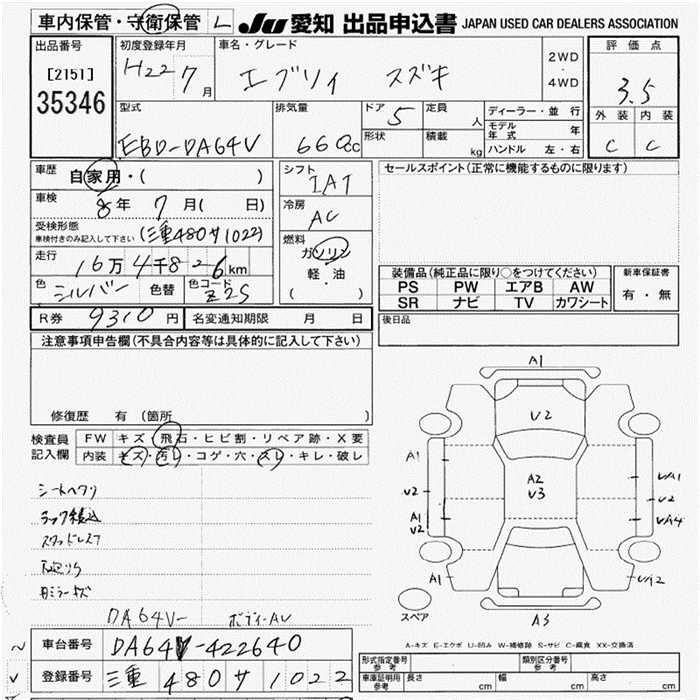 車内保管・守衛保管 L JU 愛知 出品申込書 JAPAN USED CAR DEALERS ASSOCIATION
出品番号
[2151]
35346
初度登録年月
H22 7月
車名・グレード
エブリィ スズキ
2WD
・
4WD
評価点
3.5
外装 内装
C C
型式
EBD-DA64V
排気量
660cc
ドア 5
形状
定員 人
積載 kg
ディーラー・並行
モデル年式 年
ハンドル 左・右
車歴
自家用・( )
車検
8年 7月( 日)
受検形態
車検付きのみ記入して下さい (三重480サ1022)
走行
16万4千826km
色 シルバー 色替
色コード Z2S
シフト
IAT
冷房
AC
燃料
ガソリン
軽・油
( )
セールスポイント(正常に機能するものに限ります)
装備品(純正品に限り○をつけてください)
PS PW エアB AW
SR ナビ TV カワシート
新車保証書
有・無
R券 9310円 名変通知期限 月 日
後日品
注意事項申告欄(不具合内容等は具体的に記入して下さい)
修復歴 有 (箇所 )
検査員記入欄
FW キズ・飛石・ヒビ割・リペア跡・X要
内装 キズ・汚レ・コゲ・穴・スレ・キレ・破レ
シートヘタリ
スタッドレス7
DA64V- ボディーAU
A1
V2
A2
V3
A1
V2
A1
V2
A1
UA1
V2
UA4
UA2
A3
スペア
A-キズ E-エクボ U-凹み W-補修跡 S-サビ C-腐食 XX-交換済
車台番号 DA64V-422640
登録番号 三重 480 サ 1022
形式指定番号 参考
類別区分番号 参考
車庫証明用 参考 長さ cm 幅 cm 高さ cm